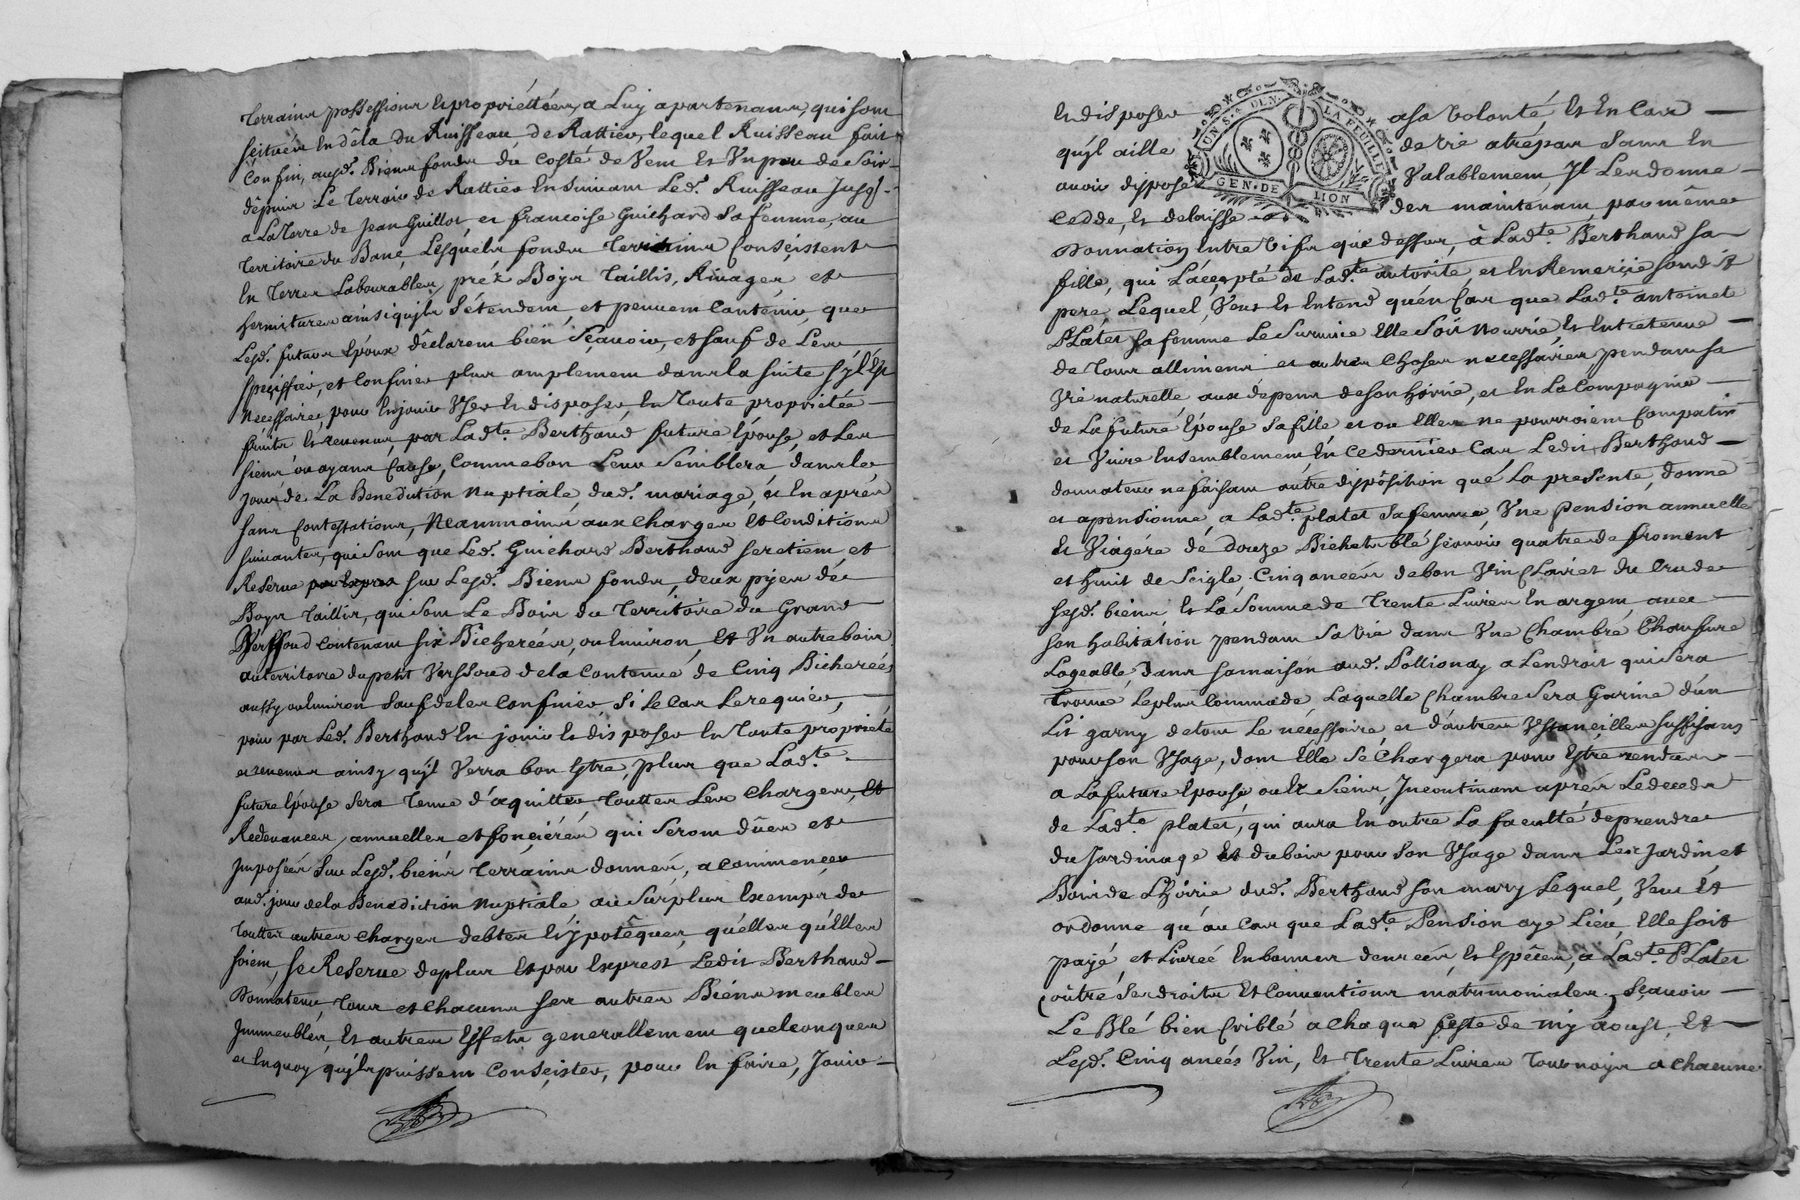 terrains possessions et propriéttées, a Luy apartenans, qui sont
scituées en dêla du Ruisseau de Rattier, lequel Ruisseau fait
Confin, ausd. Biens fonds du Costé de Vent et Un peu de Soir
dépuis Le Terroir de Rattier en Suivant Led. Ruisseau Jusq
a La Terre de Jean Guillot et francoise Guichard sa femme, au
territoire du Banc, Lesquels fonds terrains Consistent
En Terres Labourables, préz Boys Taillis, Rivages et
hermitures ainsi quyls s'étendent, et peuvent Contenir, que
Lesd. futurs Epoux déclarent bien Sçavoir, et sauf de Les
speçiffier, et Confiner plus amplement dans la suite syl Est
Necessaire, pour En jouir User En disposer, En Toute propriétée
fruits et revenus, par Ladte. Berthaud future Epouse, et Les
siens ou ayans Cause, Comme bon Leur Semblera dans le
Jour de La Benediction Nuptiale, dud. mariage, et En aprés
sans Contestations, Neanmoins aux charges et Conditions
suivantes, qui sont que Led. Guichard Berthaud se retient, et
Reserve par Expres sur Lesd. Biens fonds, deux pyes de
Boys Taillis, qui sont Le Bois du Territoire du Grand
Verssoud Contenant six Bicherées, ou Environ, Et Un autre bois
au territoire du petit Verssoud de la Contenue de Cinq Bicherées
aussy ou Environ Sauf de les Confiner, si le Cas Le requier,
pour par Led. Berthaud En jouir et disposer En Toute propriété
et revenus ainsy qu'yl Verra bon Estre, plus que Ladte.
future Epouse sera Tenue d'aquitter Touttes Les Charges, et
Redevances, annuelles et fonçiéres qui seront dûes et
Imposées sur Lesd. biens terrains donnés, a Commencer
aud. jour de la Benediction Nuptiale au Surplus Exemps de
touttes autres Charges debtes Et ypotêques, quélles qu'elles
soient, se Reserve de plus Et par Exprest Ledit Berthaud
Donnateur, tous et chacuns ses autres Biéns meubles
Immeubles, Et autres Effets generallement quelconques
et En quoy quyls puissent Consister, pour En faire, Jouir
Et disposer a sa Volonté Et En Cas
quyl aille de vie a trépas Sans En
avoir disposé Valablement, Il Les donne
Cedde, Et delaisse dés maintenant, par même
Donnation Entre Vifs que dessus, à Ladte. Berthaud sa
fille, qui L'acepte de Ladte. autorité et En Remerçie sond.t
pere, Lequel, Veut Et Entend qu'en Cas que Ladte. antoinete
PLatet sa femme Le Survive Elle Soit Nourrie Et Entretenue
de Tous allimens et autres choses necessaires pendant sa
Vie naturelle, aux dépens de son hoirie, et En La Compagnie
de La future Epouse sa fille et ou Elles ne pourroient Compatir
et Vivre Ensemblement, En Ce dernier Cas Ledit Berthaud
donnateur ne faisant autre disposition que La presente, donne
et apensionne, a Ladte. platet sa femme, Une Pension annuelle
Et Viagére de douze Bichets blé sçavoir quatre de froment
et huit de Seigle, Cinq anéés de bon Vin Clairet du Cru de
sesd. biens Et La Somme de Trente Livres En argent, avec
son habitation pendant Sa Vie dans Une Chambre Chausure
Logeable Dans sa maison aud. Pollionay a Lendroit qui sera
Trouvé Le plus Commode, Laquelle Chambre sera Garnie d'un
Lit garny de tout Le nécessaire, et d'autres Ustancilles suffisans
pour son Usage, dont Elle se Chargera pour Estre rendues
a La future Epouse ou Et Siens, Incontinant aprés Le decéds
de Ladte. platet, qui aura En outre La faculté de prendre
du Jardinage Et du bois pour Son Usage dans Les Jardin et
Bois de L'hoirie dud. Berthaud son mary, Lequel, Veut Et
ordonne qu'au Cas que Ladte. Pension aye Lieu, Elle soit
payé, et Livréé En bonnes denréés, Et Espêces, a Ladte. PLatet
outre ses droits Et Conventions matrimoniales, Sçavoir
Le Blé bien Criblé a chaque feste de my aoust, Et
Lesd. Cinq anéés Vin, Et Trente Livres Tournoys a chacune
UN S. & 8 DEN. LA FEUILLE
GEN. DE LION